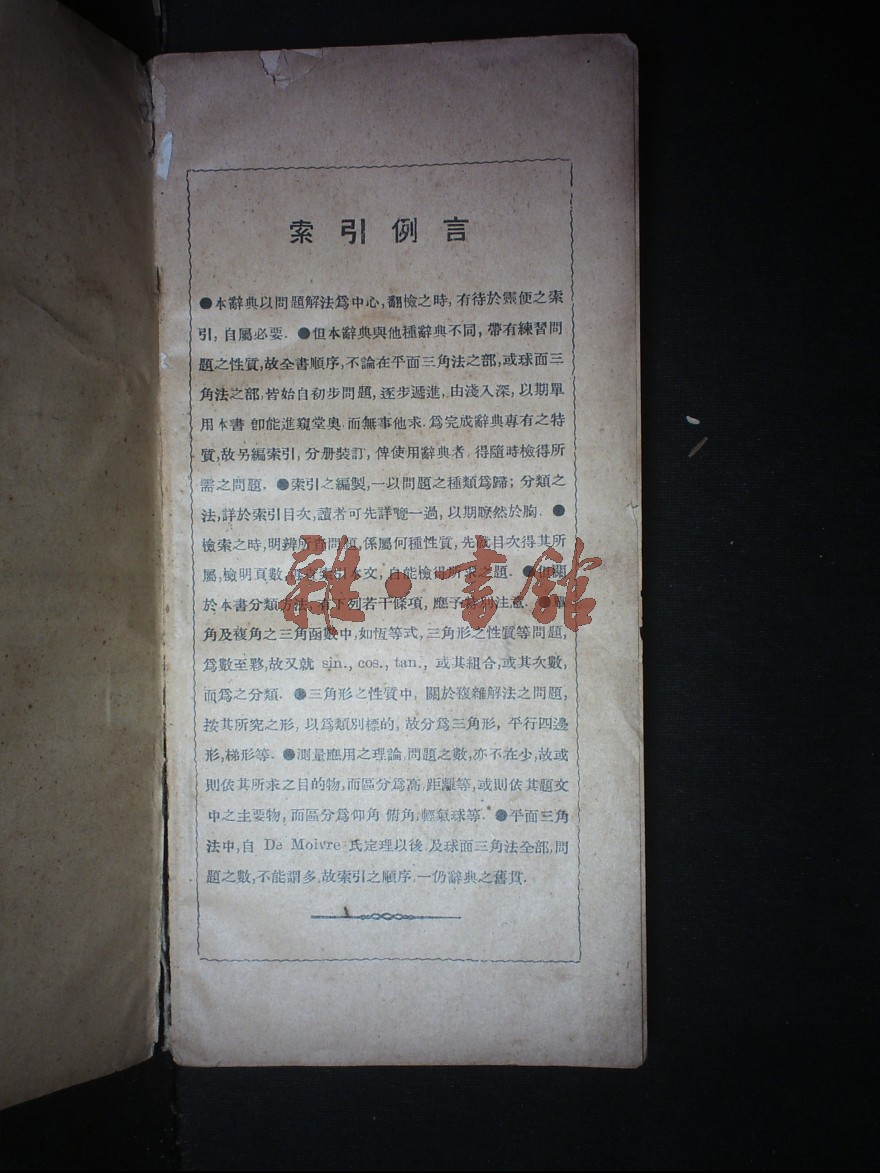 索引例言
●本辭典以問題解法爲中心,翻檢之時,有待於靈便之索
引,自屬必要.●但本辭典與他種辭典不同,帶有練習問
題之性質,故全書順序,不論在平面三角法之部,或球面三
角法之部,皆始自初步問題,逐步遞進,由淺入深,以期單
用本書 卽能進窺堂奧 而無事他求.爲完成辭典專有之特
質,故另編索引,分册裝訂,俾使用辭典者 得隨時檢得所
需之問題.●索引之編製,一以問題之種類爲歸;分類之
法,詳於索引目次,讀者可先詳覽一過,以期瞭然於胸.●
檢索之時,明辨所 問題,係屬何種性質,先 目次得其所
屬,檢明頁數, 本文,自能檢得所求之題.●
於本書分類方法,有下列若干條項,應予特別注意.●單
角及複角之三角函數中,如恆等式,三角形之性質等問題,
爲數至夥,故又就 sin., cos., tan., 或其組合,或其次數,
而爲之分類.●三角形之性質中,關於複雜解法之問題,
按其所究之形,以爲類別標的,故分爲三角形,平行四邊
形,梯形等.●測量應用之理論,問題之數,亦不在少,故或
則依其所求之目的物,而區分爲高,距離等,或則依其題文
中之主要物,而區分爲仰角 俯角,輕氣球等.●平面三角
法中,自 De Moivre 氏定理以後,及球面三角法全部,問
題之數,不能謂多,故索引之順序,一仍辭典之舊貫.
雜·書館